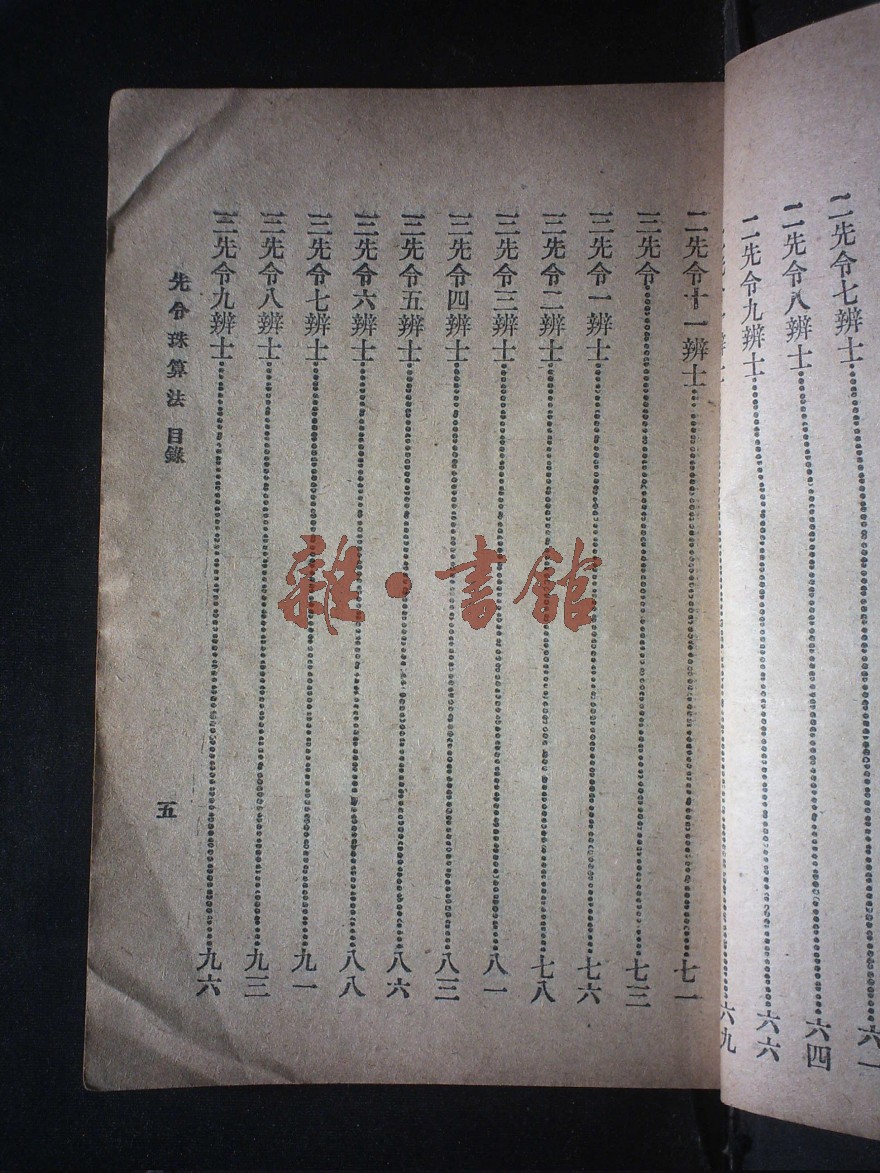 二先令七辨士………六一
二先令八辨士………六四
二先令九辨士………六六
六九
二先令十一辨士………七一
三先令………七三
三先令一辨士………七六
三先令二辨士………七八
三先令三辨士………八一
三先令四辨士………八三
三先令五辨士………八六
三先令六辨士………八八
三先令七辨士………九一
三先令八辨士………九三
三先令九辨士………九六
先令珠算法 目錄
五
雜·書館